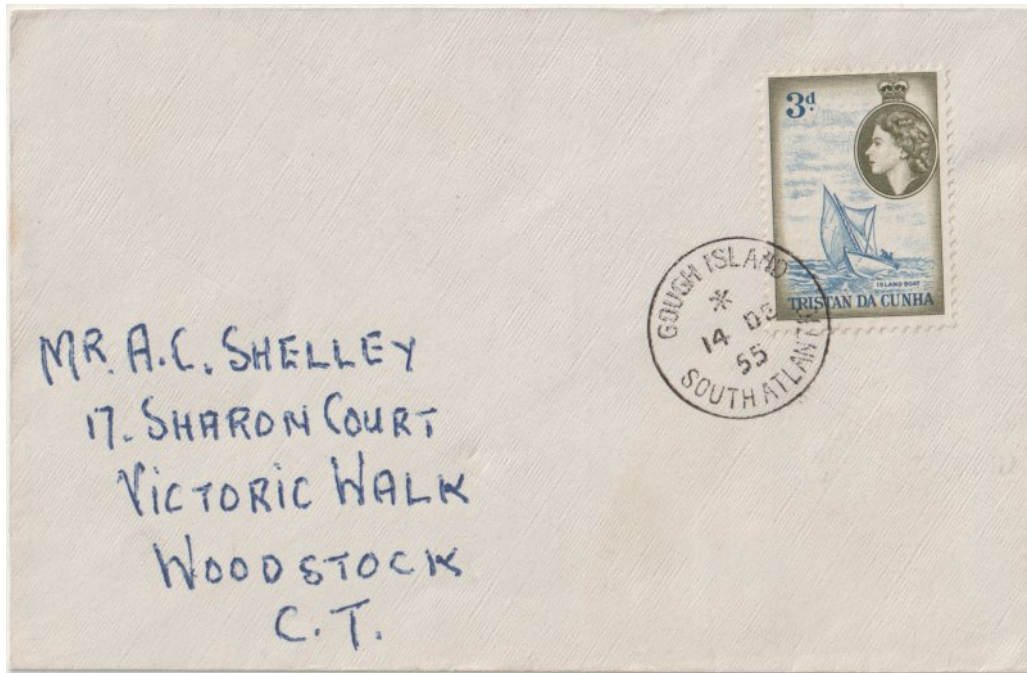 3d
ISLAND BOAT
TRISTAN DA CUNHA
GOUGH ISLAND
14 DE
55
SOUTH ATLANTIC
MR. A.C. SHELLEY
17. SHARON COURT
VICTORIC WALK
WOODSTOCK
C.T.